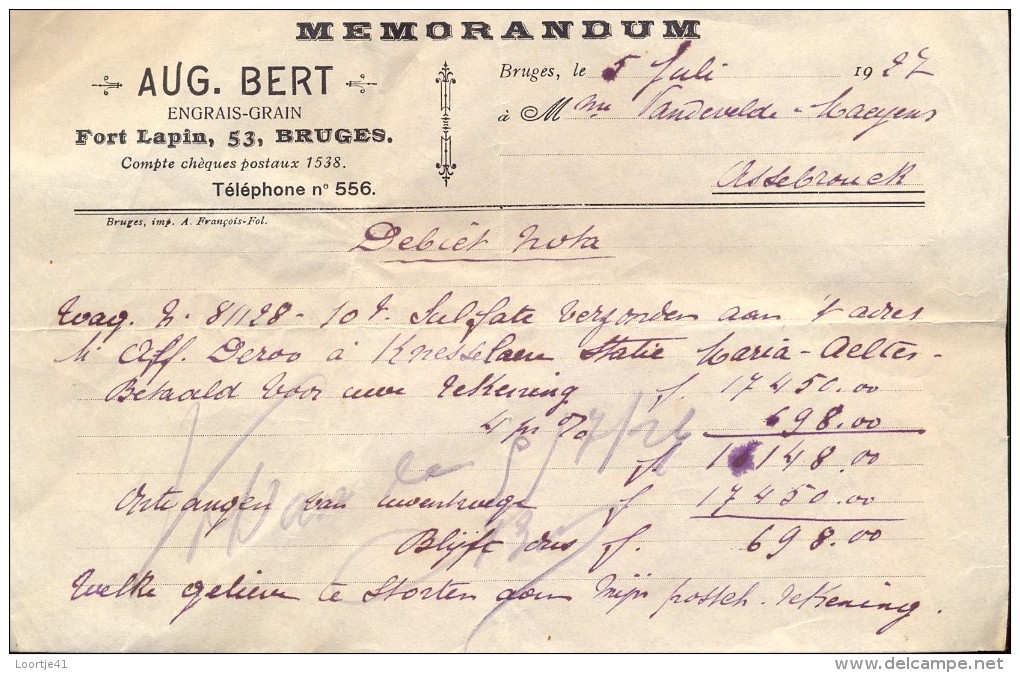 MEMORANDUM
AUG. BERT
ENGRAIS-GRAIN
Fort Lapin, 53, BRUGES.
Compte chèques postaux 1538.
Téléphone n° 556.
Bruges, imp. A. François-Fol.
Bruges, le 5 Juli 1927
à M mr Vandevelde - Maeyens
Assebrouck
Debiet Nota
Wag. N. 81128 - 10 t. Sulfate verzonden aan 't adres
Mr Aff. Deroo à Knesselaere Statie Maria-Aelter -
Betaald voor uwe rekening f. 17450.00
4 pr % 698.00
f. 18148.00
Ontvangen van uwentwege f 17450.00
Blijft dus f. 698.00
Welke gelieve te storten aan mijn postch. rekening.
le 5/7/26
Loortje41
www.delcampe.net